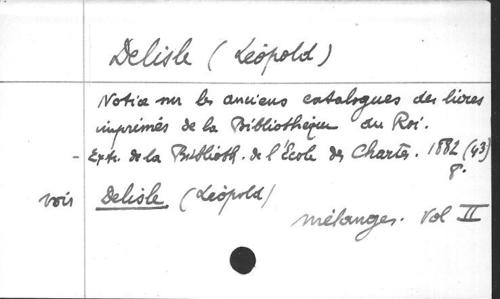 Delisle (Léopold)
Notice sur les anciens catalogues des livres
imprimés de la Bibliothèque du Roi.
- Extr. de la Biblioth. de l'Ecole des Chartes. 1882 (43)
8°.
voir Delisle (Léopold)
mélanges. Vol II